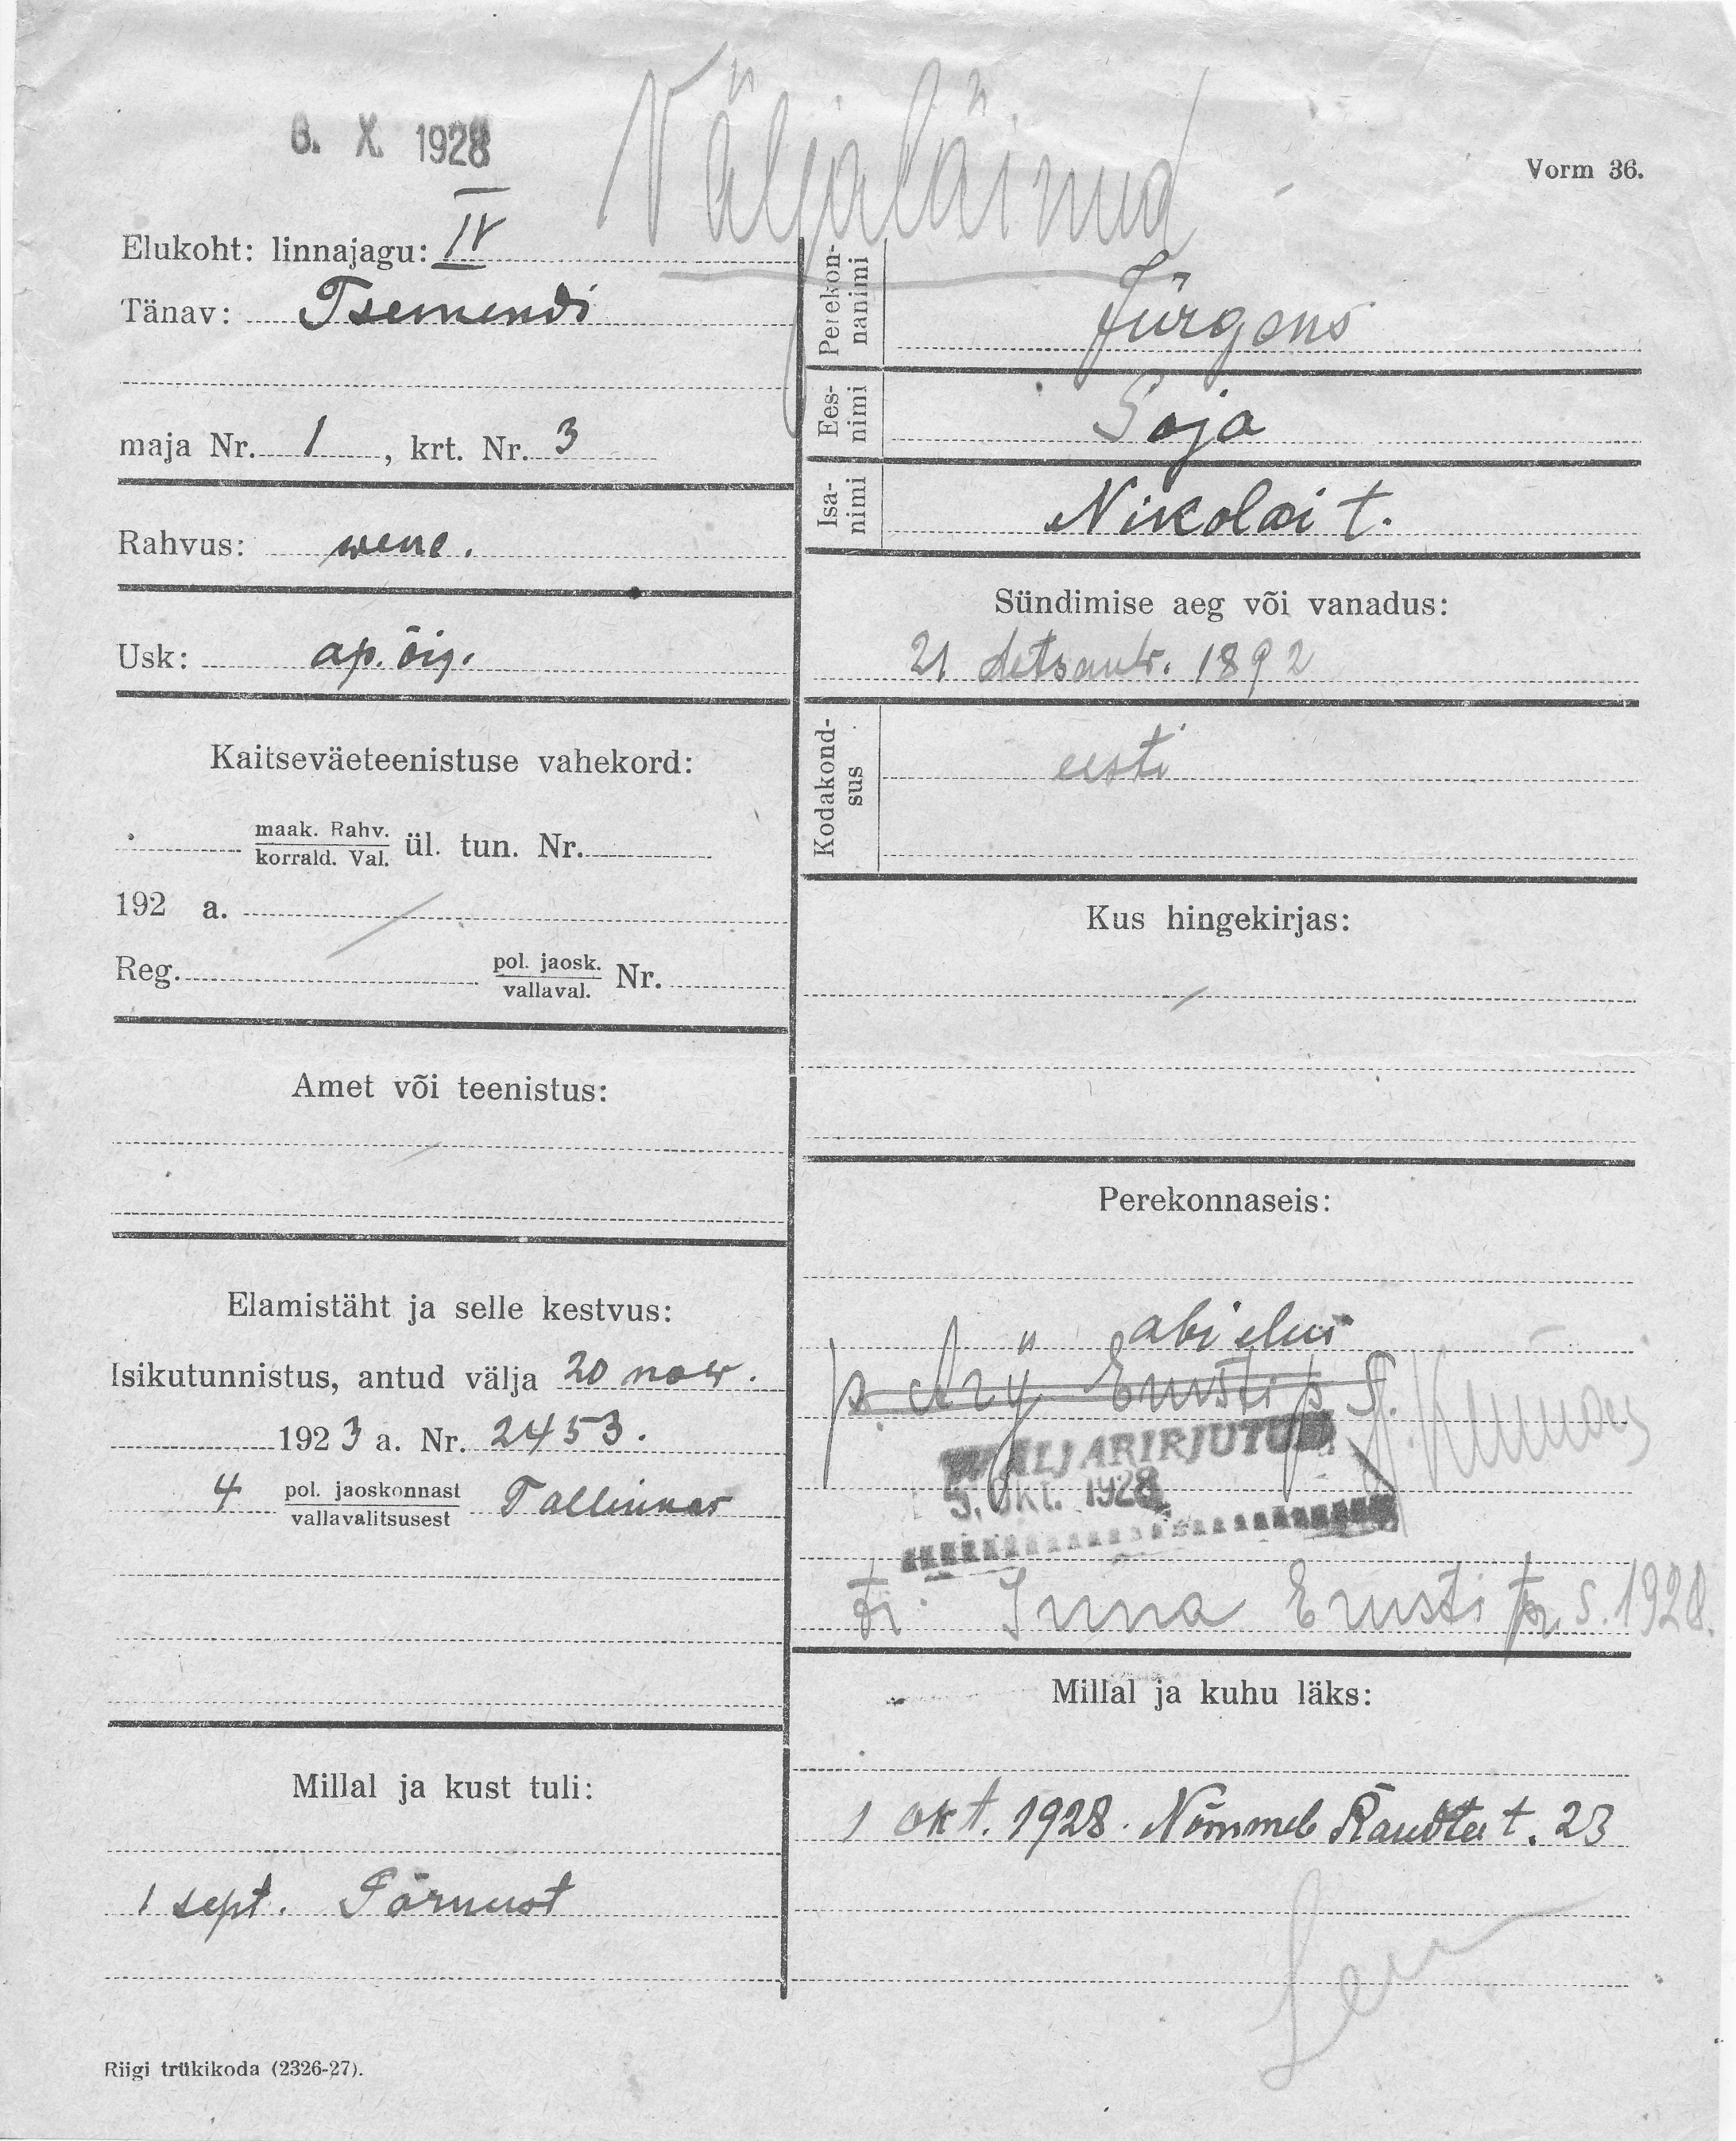 6. X. 1928
Väljaläinud
Vorm 36.
Elukoht: linnajagu: IV
Tänav: Tsemendi
maja Nr. 1, krt. Nr. 3
Rahvus: wene.
Usk: ap. õig.
Kaitseväeteenistuse vahekord:
maak. Rahv.
korrald. Val. ül. tun. Nr.
192 a.
Reg. pol. jaosk.
vallaval. Nr.
Amet või teenistus:
Elamistäht ja selle kestvus:
Isikutunnistus, antud välja 20 now.
1923 a. Nr. 2453.
4 pol. jaoskonnast
vallavalitsusest Tallinnas
Millal ja kust tuli:
1 sept. Pärnust
Riigi trükikoda (2326-27).
Perekonnanimi
Jürgens
Eesnimi
Soja
Isanimi
Nikolai t.
Sündimise aeg või vanadus:
21 detsemb. 1892
Kodakondsus
eesti
Kus hingekirjas:
Perekonnaseis:
abielus
p. Ärý Ernsti p S.
WÄLJARIRJUTUD
5. Okt. 1928
tr. Inna Ernsti tr. s. 1928.
Millal ja kuhu läks:
1 okt. 1928. Nõmmele Raudtee t. 23